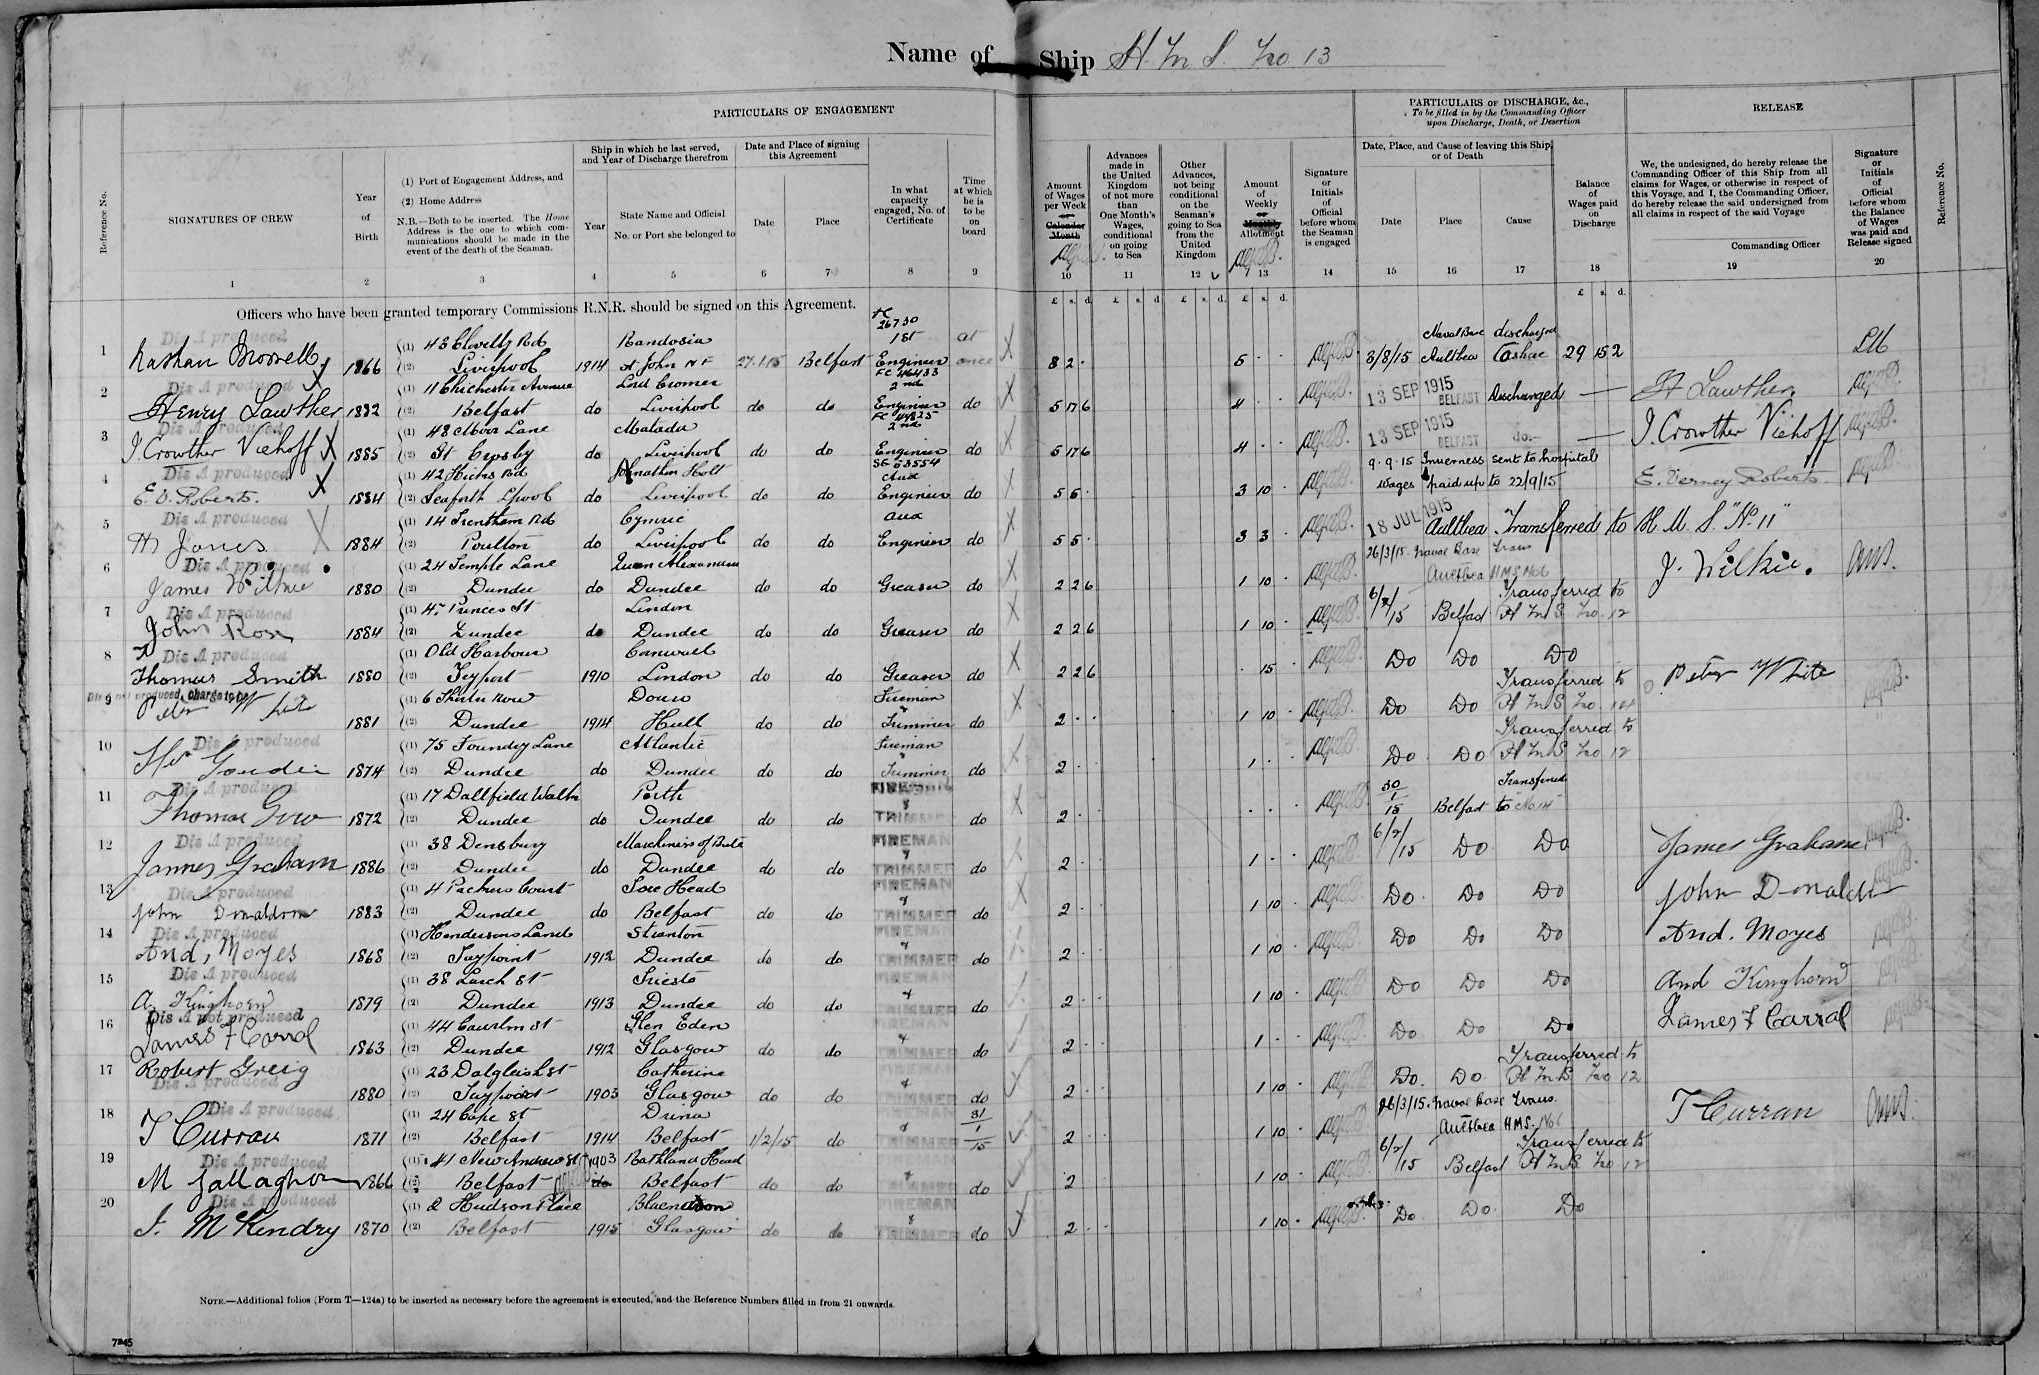 Name of Ship H. M. S. No 13
PARTICULARS OF ENGAGEMENT
PARTICULARS OF DISCHARGE, &c.,
To be filled in by the Commanding Officer
upon Discharge, Death, or Desertion
RELEASE
Reference No.
SIGNATURES OF CREW
1
Year
of
Birth
2
(1) Port of Engagement Address, and
(2) Home Address
N.B.—Both to be inserted. The Home
Address is the one to which com-
munications should be made in the
event of the death of the Seaman.
3
Ship in which he last served,
and Year of Discharge therefrom
Year
4
State Name and Official
No. or Port she belonged to
5
Date and Place of signing
this Agreement
Date
6
Place
7
In what
capacity
engaged, No. of
Certificate
8
Time
at which
he is
to be
on
board
9
Amount
of Wages
per Week
or
Calendar
Month
10
Advances
made in
the United
Kingdom
of not more
than
One Month's
Wages,
conditional
on going
to Sea
11
Other
Advances,
not being
conditional
on the
Seaman's
going to Sea
from the
United
Kingdom
12
Amount
of
Weekly
or
Monthly
Allotment
13
Signature
or
Initials
of
Official
before whom
the Seaman
is engaged
14
Date, Place, and Cause of leaving this Ship,
or of Death
Date
15
Place
16
Cause
17
Balance
of
Wages paid
on
Discharge
18
We, the undersigned, do hereby release the
Commanding Officer of this Ship from all
claims for Wages, or otherwise in respect of
this Voyage, and I, the Commanding Officer,
do hereby release the said undersigned from
all claims in respect of the said Voyage
Commanding Officer
19
Signature
or
Initials
of
Official
before whom
the Balance
of Wages
was paid and
Release signed
20
Reference No.
£ s. d. £ s. d. £ s. d. £ s. d. £ s. d.
Officers who have been granted temporary Commissions R.N.R. should be signed on this Agreement.
Dis A produced (1) 43 Clovelly Rd 26730 1st at Naval Base discharged
1 Nathan 1866 (2) Liverpool 1914 St John NF 27.1.15 Belfast Engineer once X 8 2 5 3/8/15 Aultbea 29 15 2
Dis A produced (1) 11 Chichester Avenue Lord Cromer 2nd
2 Henry Lawther 1882 (2) Belfast do Liverpool do do Engineer do X 5 17 6 4 13 SEP 1915 BELFAST Discharged — H Lawther
Dis A produced (1) 48 Moor Lane Matadi 2nd
3 J. Crowther Viehoff X 1885 (2) Gt Crosby do Liverpool do do Engineer do X 5 17 6 4 13 SEP 1915 BELFAST do — J. Crowther Viehoff
Dis A produced (1) 42 Hicks Rd Jonathan Holt 53554 Aux 9.9.15 Inverness sent to hospital
4 E. V. Roberts. X 1884 (2) Seaforth Lpool do Liverpool do do Engineer do X 5 5 3 10 Wages paid up to 22/9/15 E. Verney Roberts
Dis A produced (1) 14 Trentham Rd Cymric Aux
5 H Jones 1884 (2) Poulton do Liverpool do do Engineer do X 5 5 3 3 18 JUL 1915 Aultbea Transferred to H. M. S. "No. 11"
Dis A produced (1) 24 Temple Lane Queen Alexandra 26/3/15 Naval Base Trans
6 James Wilkie 1880 (2) Dundee do Dundee do do Greaser do X 2 2 6 1 10 Aultbea HMS No6 J. Wilkie.
Dis A produced (1) Princes St London Transferred to
7 John Ross 1884 (2) Dundee do Dundee do do Greaser do X 2 2 6 1 10 6/2/15 Belfast H M S. No. 12
Dis A produced (1) Old Harbour Cornwall
8 Thomas Smith 1880 (2) Tayport 1910 London do do Greaser do X 2 2 6 15 Do Do Do
Dis A not produced, charge to be (1) 6 Row Douro Fireman Transferred to
9 Peter White 1881 (2) Dundee 1914 Hull do do & Trimmer do X 2 1 10 Do Do H M S. No. 14 Peter White
Dis A produced (1) 75 Foundry Lane Atlantic Fireman Transferred to
10 1874 (2) Dundee do Dundee do do & Trimmer do X 2 1 Do Do H M S No 12
Dis A produced (1) 17 Dallfield Walk Perth FIREMAN Transferred
11 Thomas Gow 1872 (2) Dundee do Dundee do do & TRIMMER do X 2 30/1/15 Belfast to No 14
Dis A produced (1) 38 Densbury FIREMAN
12 James Graham 1886 (2) Dundee do Dundee do do & TRIMMER do 2 1 6/2/15 Do Do James Graham
Dis A produced (1) 4 Packers Court Tore Head FIREMAN
13 John Donaldson 1883 (2) Dundee do Belfast do do & TRIMMER do X 2 1 10 Do Do Do John Donaldson
Dis A produced (1) Hendersons Land Stranton FIREMAN
14 And, Moyes 1868 (2) Tayport 1912 Dundee do do & TRIMMER do 2 1 10 Do Do Do And. Moyes
Dis A produced (1) 38 Larch St FIREMAN
15 A Kinghorn 1879 (2) Dundee 1913 Dundee do do & TRIMMER do 2 1 10 Do Do Do And Kinghorn
Dis A not produced (1) 44 St Glen Eden FIREMAN
16 James F Carrol 1863 (2) Dundee 1912 Glasgow do do & TRIMMER do 2 1 Do Do Do James F Carrol
17 Robert Greig (1) 23 Dalgleish St Catherine FIREMAN Transferred to
Dis A produced 1880 (2) Tayport 1903 Glasgow do do & TRIMMER do 2 1 10 Do. Do. H M S. No 12
Dis A produced (1) 24 Cape St Drina FIREMAN 31/1/15 26/3/15. Naval Base Trans.
18 T Curran 1871 (2) Belfast 1914 Belfast 1/2/15 do & TRIMMER 2 1 10 Aultbea HMS. No6 T Curran
Dis A produced (1) 41 New Andrew St 1903 Rathland Head FIREMAN Transferred to
19 M Gallaghan 1866 (2) Belfast do Belfast do do & TRIMMER do 2 1 10 6/2/15 Belfast H M S. No 12
Dis A produced (1) 2 Hudson Place FIREMAN
20 J. McKendry 1870 (2) Belfast 1915 Glasgow do do & TRIMMER do 2 1 10 Do. Do. Do
NOTE.—Additional folios (Form T—124a) to be inserted as necessary before the agreement is executed, and the Reference Numbers filled in from 21 onwards.
7245